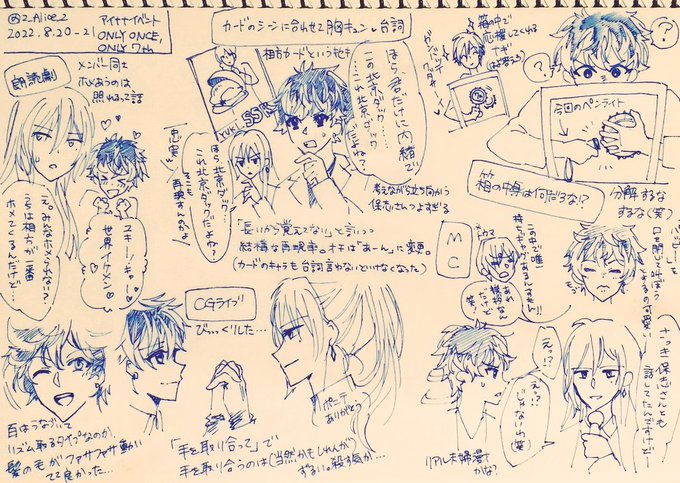 @2_Alice_2
アイナナイベント
2022.8.20-21
ONLY ONCE,
ONLY 7th
朗読劇
メンバー同士
ホメあうのは
照れるって話
ユキー！キャー！
世界一イケメン！
え、みんなホメられない？
うちは相方が一番
ホメてくるんだけど…
カードのシーンに合わせて胸キュン台詞
相方カードというせも
YUKI
SSR
ほら、君だけに内緒で
この北京ダック……
……これ北京ダック
だよね？
ほら、北京ダック…
これ北京ダックだよね？
そこも
再現すんのかよ
忠実
考えながら立ち向かう
保志さんつよすぎる
「長いから覚えてない」と言いつつ
結構な再現率。オチは「あーん」に変更。
(カードのキャラも台詞言わないといけなくなった)
箱の中で
応援してくれる
ナギ
？
今回のペンライト
箱の中身は何だろな!?
分解するな
するな(笑)
MC
この中で唯一
あれ
挨拶なん
だっけ
笑
口を閉じて
ナッキー保志さんとも
話してたんですけどー
えっ!?
え!?
じゃないわ(笑)
リアル夫婦漫才
かな？
CGライブ
びっっくりした…
百はうなづいて
リズム取るタイプなのか
髪の毛がファサファサ動い
てて良かった…
「手を取り合って」で
手を取り合うのは(当然かもしれんが)
ずるい。殺す気か…
ポーテ
ありがとう